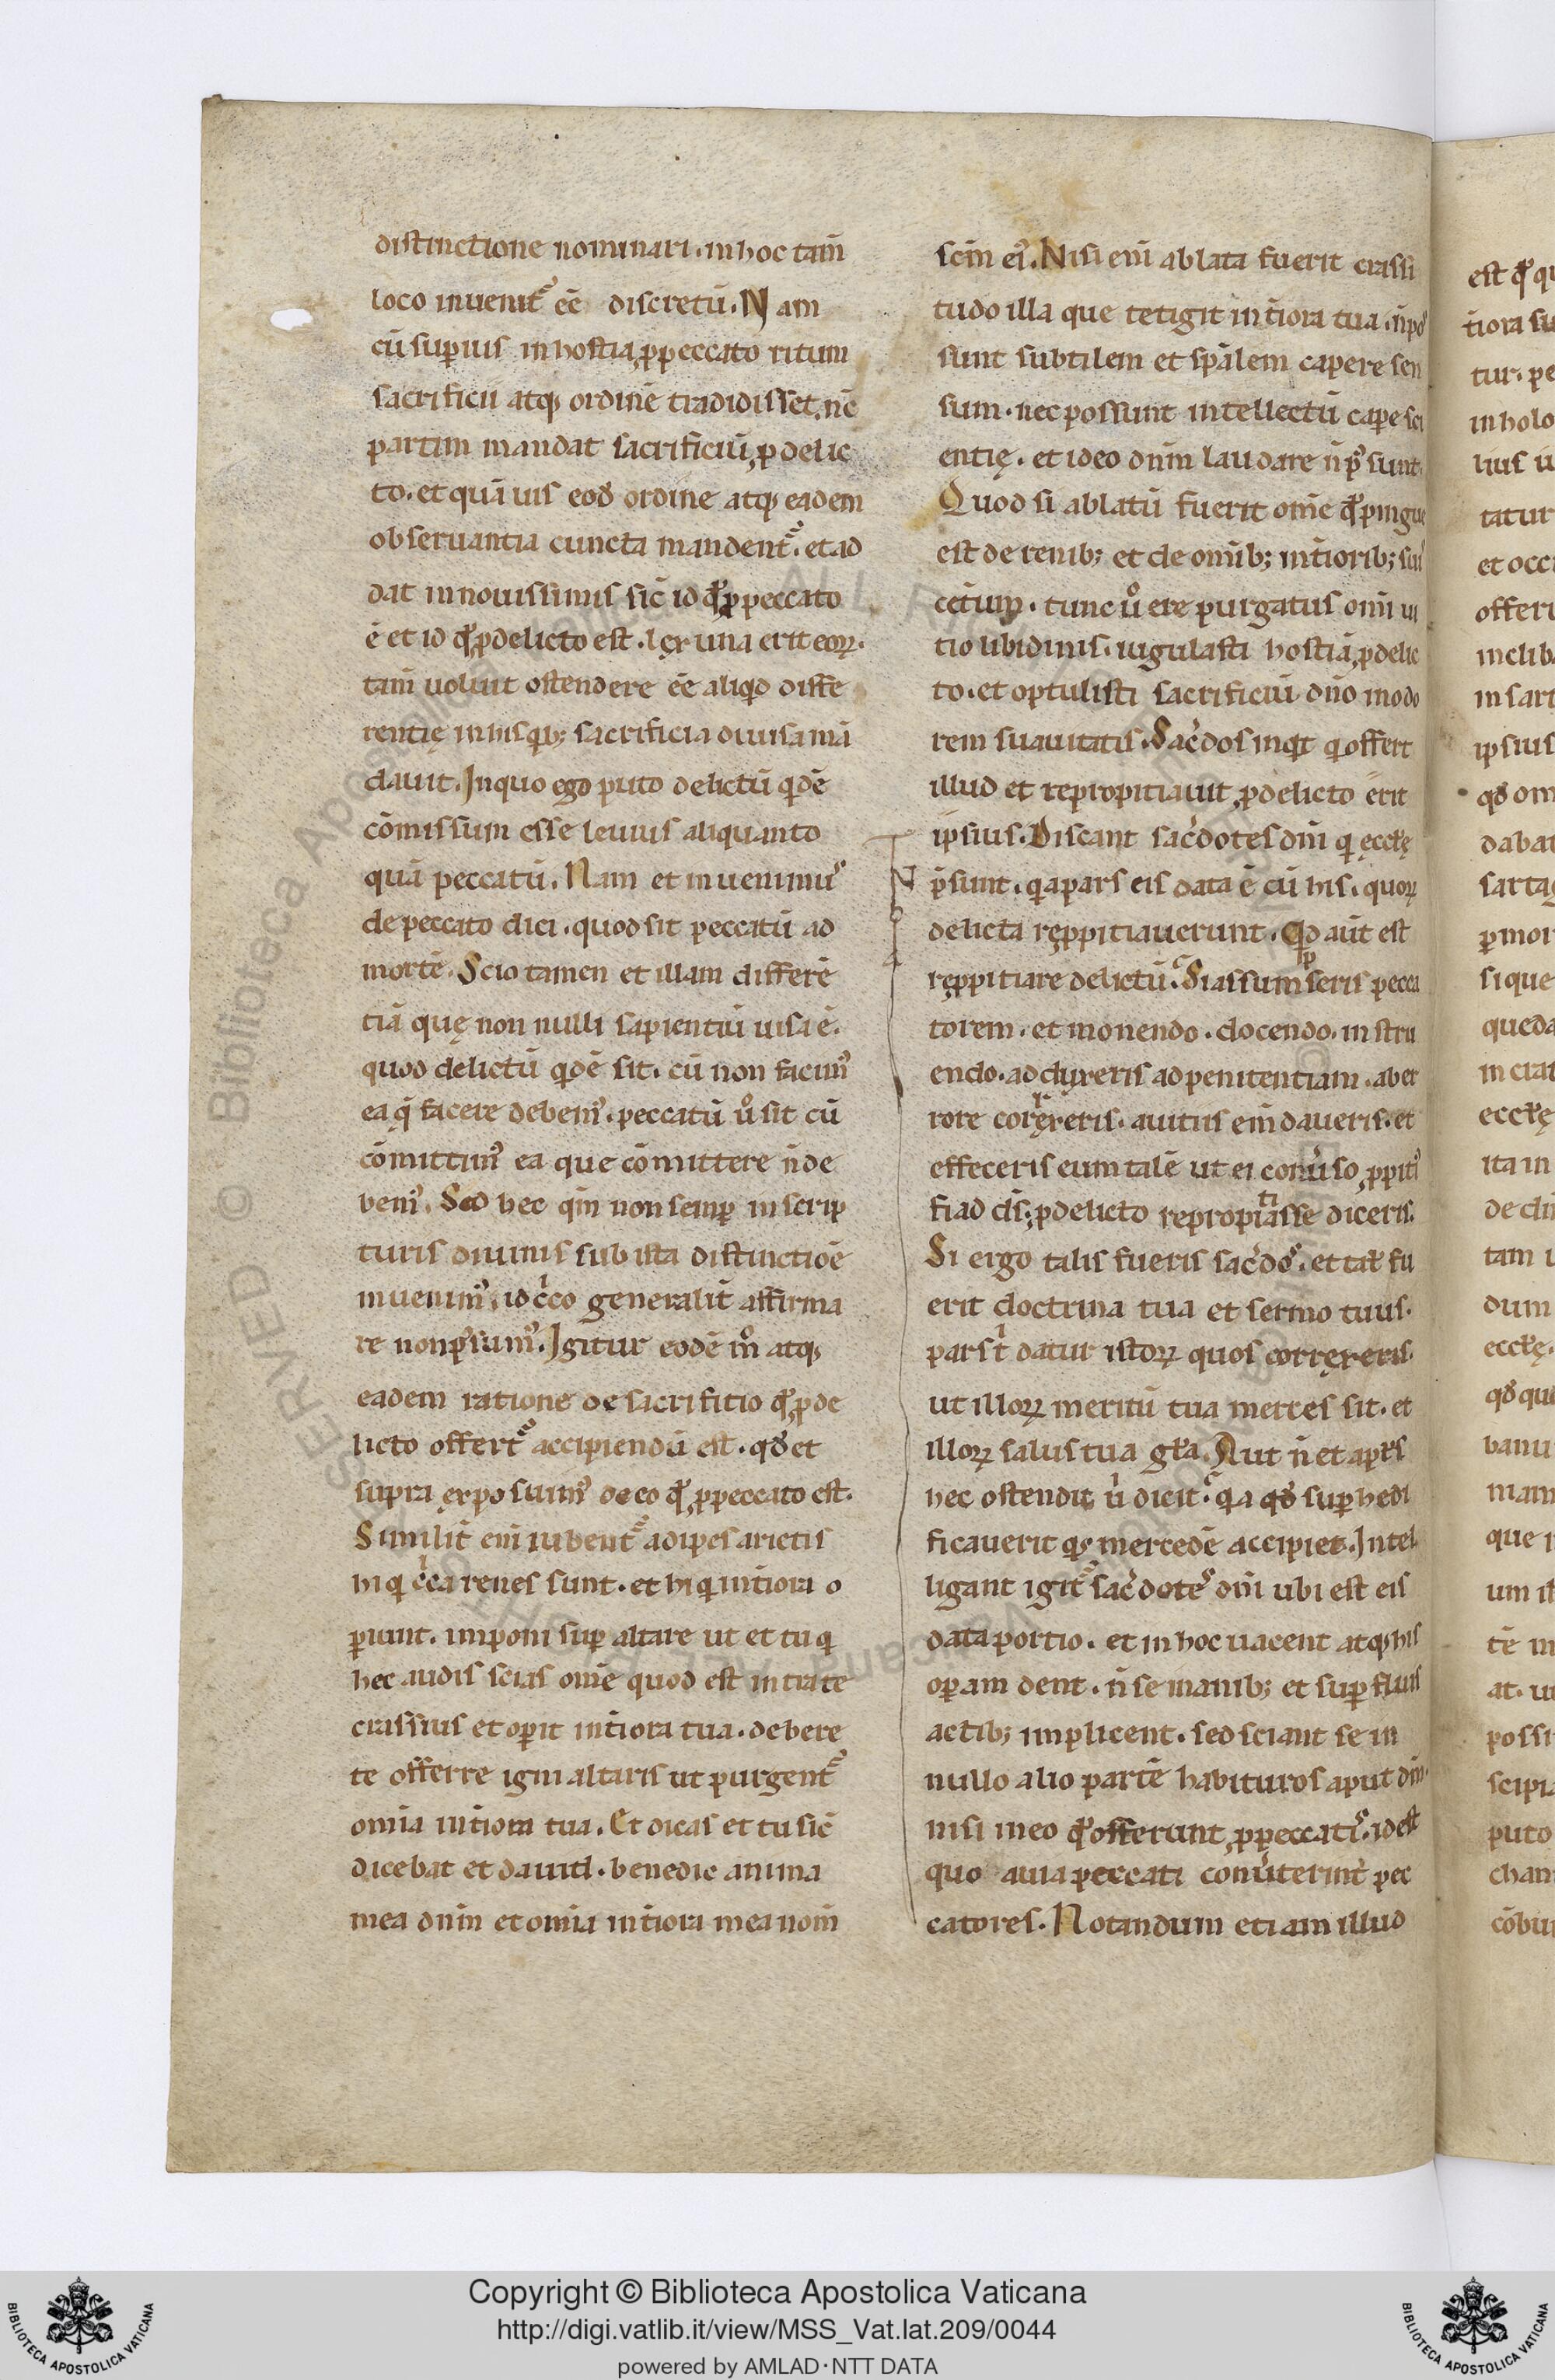 distinctione nominari. in hoc tam̄
loco inuenit᷒ ēē discretū. Nam
cū superius in hostia ꝓ peccato ritum
sacrificii atqꝫ ordinē tradidisset. nc̄
partim mandat sacrificiū ꝓ delic
to. et quāuis eod̄ ordine atqꝫ eadem
obseruantia cuncta mandent᷒. et ad
dat in nouissimis sic̄ id qđ ꝓ peccato
ē et id qđ ꝓ delicto est. lex una erit eoꝝ.
tam̄ uoluit ostendere ēē aliqđ diffe
rentię in his qibꝫ sacrificia diuisa mā
dauit. In quo ego puto delictū qidē
cōmissum esse leuius aliquanto
quā peccatū. Nam et inuenimꝰ
de peccato dici. quod sit peccatū ad
mortē. Scio tamen et illam differē
tiā quę non nulli sapientiū uisa ē.
quod delictū qidē sit. cū non facimꝰ
ea q̄ facere debemꝰ. peccatū ů sit cū
cōmittimꝰ ea que cōmittere n̄ de
bemꝰ. Sed hec qm̄ non semꝑ in scrip
turis diuinis sub ista distinctiōē
inuenimꝰ. idcͥco generalit̄ affirma
re non pͦsumꝰ. Igitur eodē mͦ atqꝫ
eadem ratione de sacrifitio qđ ꝓ de
licto offert᷒ accipiendū est. qđ et
supra exposuimꝰ de eo qđ ꝓ peccato est.
Similit̄ eni᷒ iubent᷒ adipes arietis
hi q cͥca renes sunt. et hi q int̄iora o
ꝑiunt. imponi suꝑ altare ut et tu q
hec audis scias om̄e quod est intra te
crassius et oꝑit int̄iora tua. debere
te offerre igni altaris ut purgent᷒
om̄ia int̄iora tua. Et dicas et tu sic̄
dicebat et dauitd. benedic anima
mea dn̄m et om̄ia int̄iora mea nom̄
sc̄m eiꝰ. Nisi eni᷒ ablata fuerit crassi
tudo illa que tetigit int̄iora tua. n̄ pos
sunt subtilem et sp̄alem capere sen
sum. nec possunt intellectū caꝑe sci
entię. et ideo dn̄m laudare n̄ pͦsunt.
Quod si ablatū fuerit om̄e qđ pingue
est de renibꝫ et de om̄ibꝫ int̄ioribꝫ
tunc ůere purgatus om̄i ui
tio libidinis. iugulasti hostiā ꝓ delic
to. et optulisti sacrificiū dn̄o in odo
rem suauitatis. Sac̄dos inqit q offert
illud et repropitiauit ꝓ delicto erit
ipsius. Discant sac̄dotes dn̄i q ęccłę
p̄sunt. qa pars eis data ē cū his. quoꝝ
delicta reꝓpitiauerunt. Qid aūt est
reꝓpitiare delictū. Si assumpseris pecca
torem. et monendo. docendo. instru
endo. adduxeris ad penitentiam. ab er
rore correxeris. a uitiis em̄daueris. et
effeceris eum talē ut ei conūso ꝓpitiꝰ
fiad ds̄. ꝓ delicto repropitiasse diceris.
Si ergo talis fueris sac̄dos. et tał fu
erit doctrina tua et sermo tuus.
pars tͥ datur istoꝝ quos correxeris.
ut illoꝝ meritū tua merces sit. et
illoꝝ salus tua gła. Aut n̄ et apłs
hec ostendit uͥ dicit. qa qđ suꝑhedi
ficauerit qis mercedē accipiet. Intel
ligant igit᷒ sac̄dotes dn̄i ubi est eis
data portio. et in hoc uacent atqꝫ his
oꝑam dent. n̄ se inanibꝫ et suꝑfluis
actibꝫ implicent. sed sciant se in
nullo alio partē habituros aput dm̄.
nisi in eo qđ offerunt ꝓ peccatis. id est
quo a uia peccati conūterint pec
catores. Notandum etiam illud
Copyright © Biblioteca Apostolica Vaticana
http://digi.vatlib.it/view/MSS_Vat.lat.209/0044
powered by AMLAD·NTT DATA